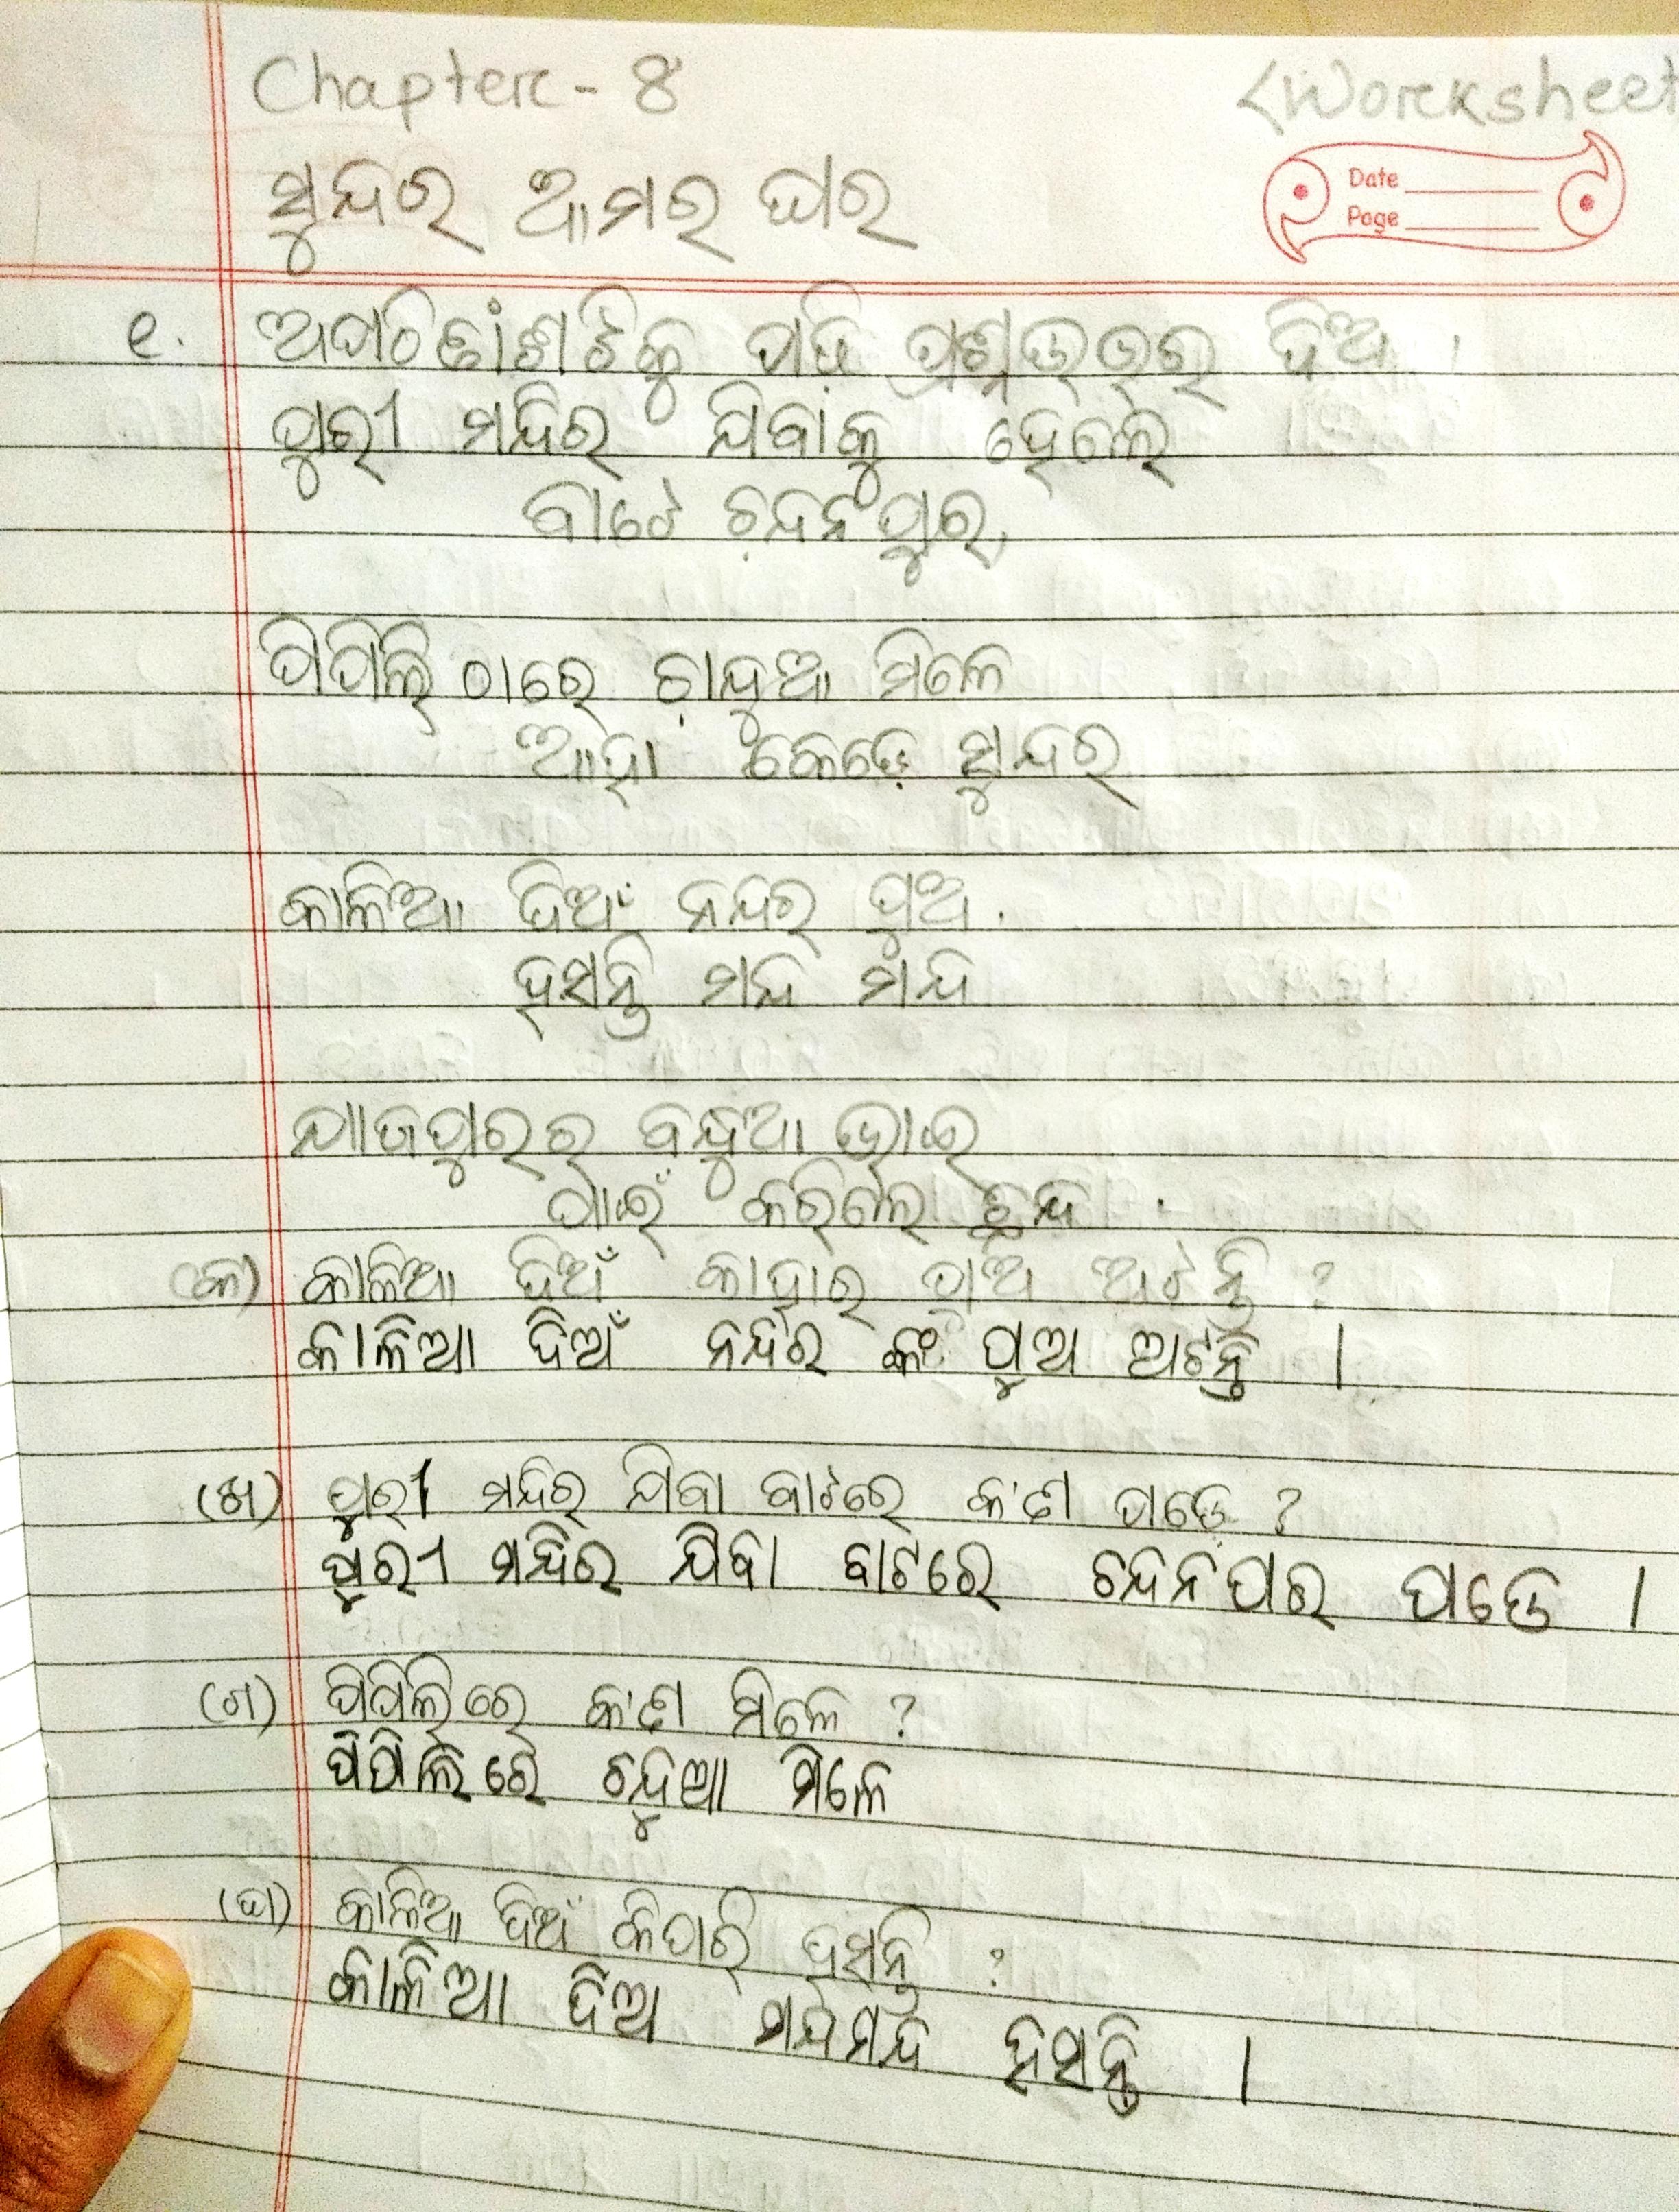 Chapter - 8
<Worksheet
ସୁନ୍ଦର ଆମର ଘର
Date
Page
୧. ଅପଠିତାଂଶଟିକୁ ପଢ଼ି ପ୍ରଶ୍ନଉତ୍ତର ଦିଅ ।
ପୁରୀ ମନ୍ଦିର ଯିବାକୁ ହେଲେ
ବାଟେ ଚନ୍ଦନପୁର,
ପିପିଲି ଠାରେ ଚାନ୍ଦୁଆ ମିଳେ
ଆହା କେଡ଼େ ସୁନ୍ଦର
କାଳିଆ ଦିଅଁ ନନ୍ଦର ପୁଅ .
ହସନ୍ତି ମନ୍ଦ ମନ୍ଦ
ଯାଜପୁରର ବନ୍ଧୁଆ ଭାଇ
ପାଇଁ କରିଗଲେ ଛନ୍ଦ .
(କ) କାଳିଆ ଦିଅଁ କାହାର ପୁଅ ଅଟନ୍ତି ?
କାଳିଆ ଦିଅଁ ନନ୍ଦିର ଙ୍କ ପୁଅ ଅଟନ୍ତି ।
(ଖ) ପୁରୀ ମନ୍ଦିର ଯିବା ବାଟରେ କ'ଣ ପଡେ଼ ?
ପୁରୀ ମନ୍ଦିର ଯିବା ବାଟରେ ଚନ୍ଦନପର ପଡେ ।
(ଗ) ପିପିଲିରେ କ'ଣ ମିଳେ ?
ପିପିଲିରେ ଚନ୍ଦୁଆ ମିଳେ
(ଘ) କାଳିଆ ଦିଅଁ କିପରି ହସନ୍ତି ?
କାଳିଆ ଦିଅ ମନ୍ଦମନ୍ଦ ହସନ୍ତି ।